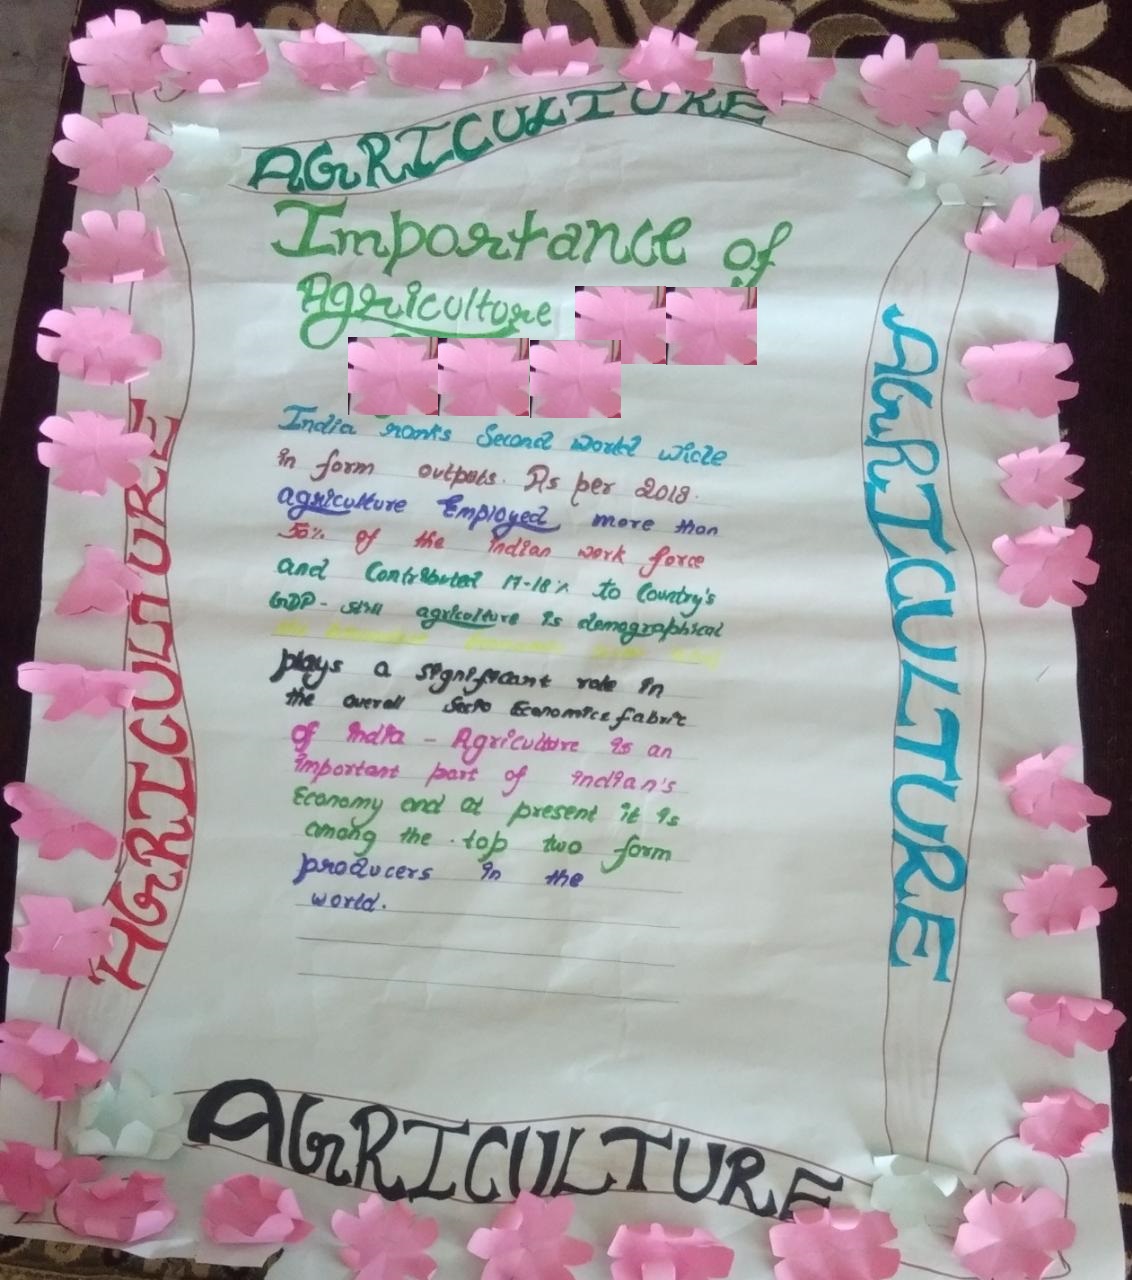 AGRICULTURE
Importance of
Agriculture
India ranks Second world wide
in form outputs. As per 2018.
agriculture Employed more than
50% of the indian work force
and Contributed 17-18% to Country's
GDP- still agriculture is demographical
plays a significant role in
the overall Socio Economics fabric
of india - Agriculture is an
important part of indian's
Economy and at present it is
among the top two form
producers in the
world.
AGRICULTURE
AGRICULTURE
AGRICULTURE